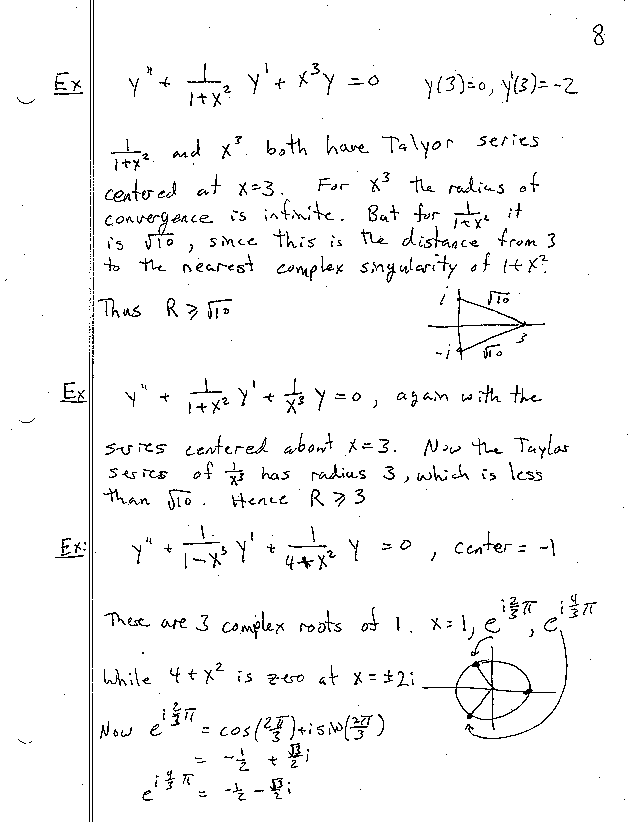 8
Ex y" + 1/(1+x²) y' + x³y = 0 y(3)=0, y'(3)=-2
1/(1+x²) and x³ both have Talyor series
centered at x=3. For x³ the radius of
convergence is infinite. But for 1/(1+x²) it
is √10, since this is the distance from 3
to the nearest complex singularity of 1+x².
Thus R ≥ √10
i √10
3
-i √10
Ex y" + 1/(1+x²) y' + 1/x³ y = 0, again with the
series centered about x=3. Now the Taylor
series of 1/x³ has radius 3, which is less
than √10. Hence R ≥ 3
Ex: y" + 1/(1-x³) y' + 1/(4+x²) y = 0, center = -1
There are 3 complex roots of 1. x=1, e^(i 2/3 π), e^(i 4/3 π)
While 4+x² is zero at x=±2i
Now e^(i 2/3 π) = cos(2π/3)+i sin(2π/3)
= -1/2 + √3/2 i
e^(i 4/3 π) = -1/2 - √3/2 i